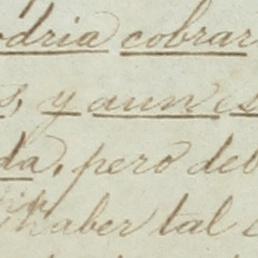 odria cobrar
s, y aun es
da, pero deb
haber tal c